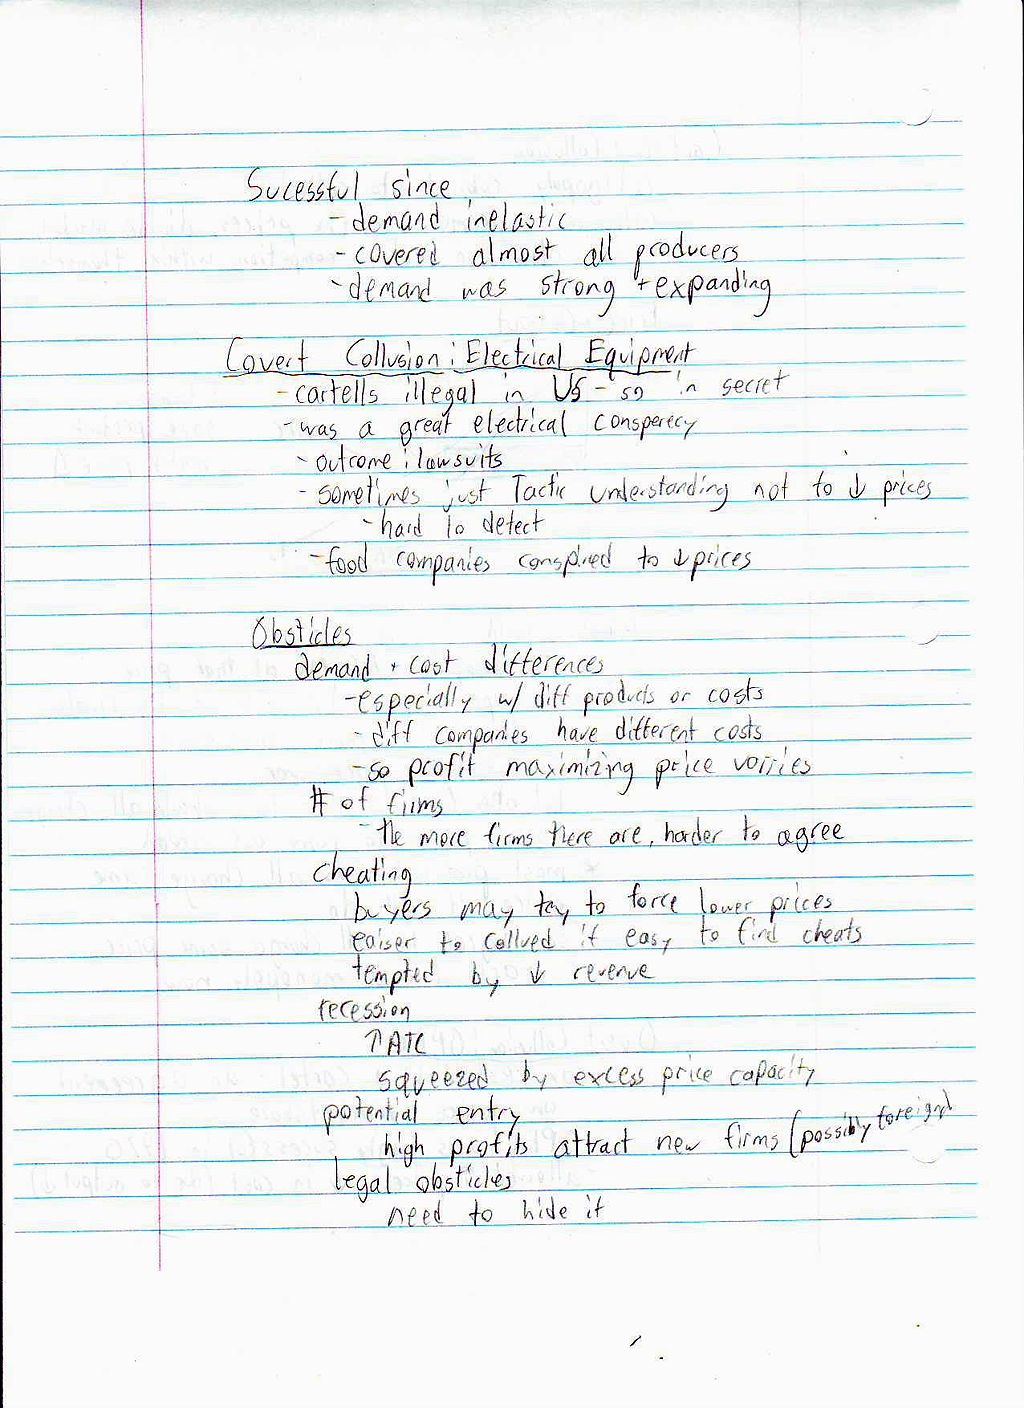 Sucessful since
- demand inelastic
- covered almost all producers
- demand was strong + expanding
Covert Collusion: Electrical Equipment
- cartells illegal in US - so in secret
- was a great electrical consperecy
- outcome: lawsuits
- sometimes just Tactic understanding not to ↓ prices
- hard to detect
- food companies conspired to ↓ prices
Obsticles
demand + cost differences
- especially w/ diff products or costs
- diff companies have different costs
- so profit maximizing price vorries
# of firms
- the more firms there are, harder to agree
cheating
buyers may try to force lower prices
eaiser to collued if easy to find cheats
tempted by ↓ revenue
recession
↑ATC
squeezed by excess price capacity
potential entry
high profits attract new firms (possibly foreign)
legal obsticles
need to hide it